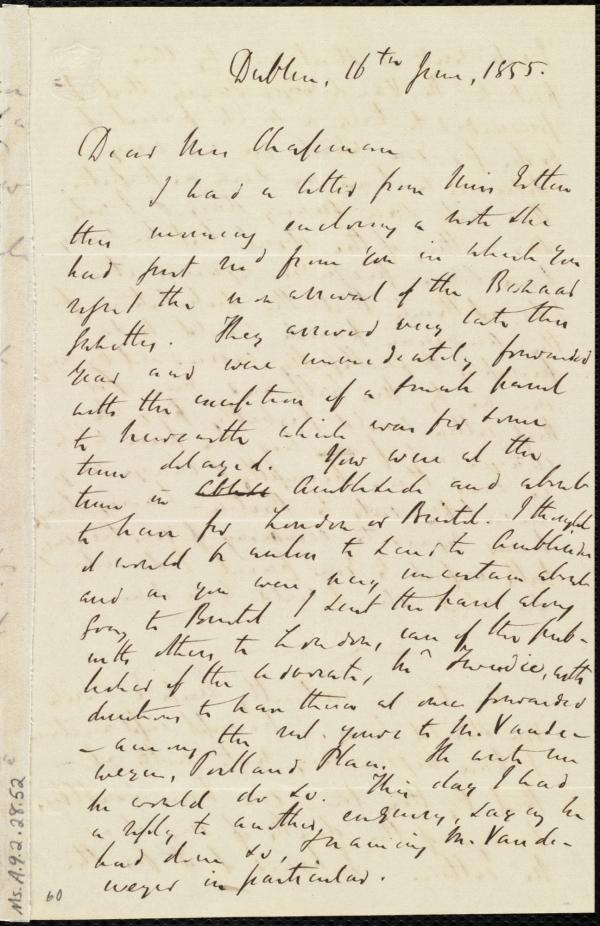 Dublin, 16th June, 1855.
Dear Mrs Chapman
I had a letter from Miss Estlin
this morning enclosing a note she
had just recd from you in which you
regret the non arrival of the Bazaar
Gazettes. They arrived very late this
year and were immediately forwarded
with the exception of a small parcel
to Newcastle which was for some
time delayed. You were at the
time in Ambleside and about
to leave for London or Bristol. I thought
it would be useless to send to Ambleside
and as you were very uncertain about
going to Bristol I sent the parcel along
with others to London, care of the pub-
lisher of the Advocate, Mr Tweedie, with
directions to have them at once forwarded
- among the rest yours to M. Vande-
weyer, Portland Place. He wrote me
he would do so. This day I had
a reply to another enquiry, saying he
had done so, naming M. Vande-
weyer in particular.
60
Ms. A.9.2.28.52